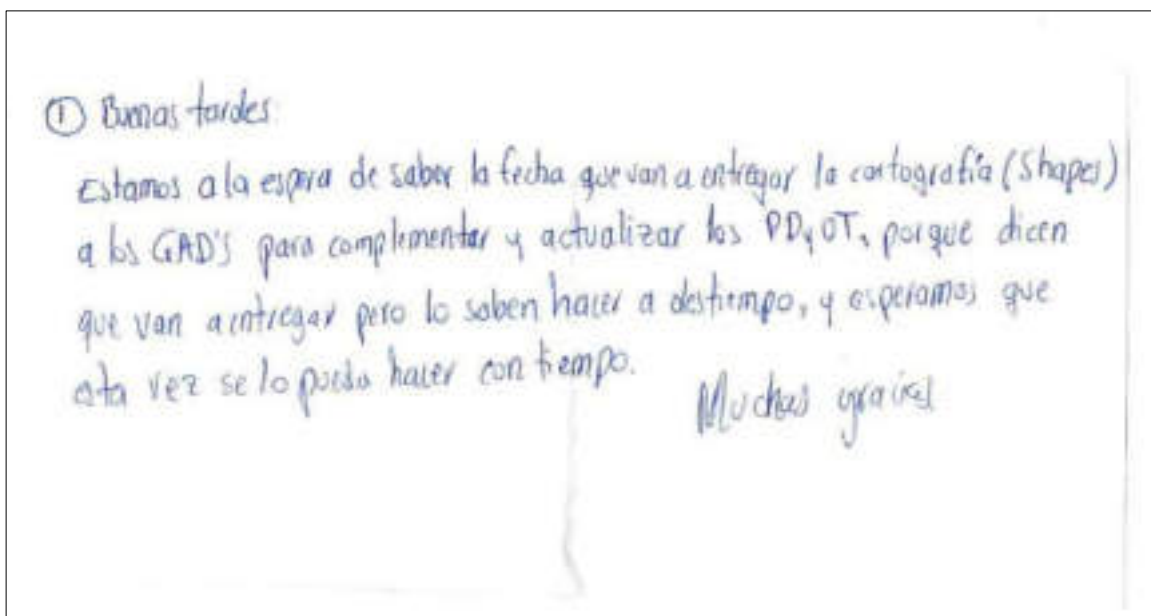 ① Buenas tardes
Estamos a la espera de saber la fecha que van a entregar la cartografía (Shapes)
a los GAD'S para complementar y actualizar los PDyOT, porque dicen
que van a entregar pero lo saben hacer a destiempo, y esperamos que
esta vez se lo pueda hacer con tiempo.
Muchas gracias